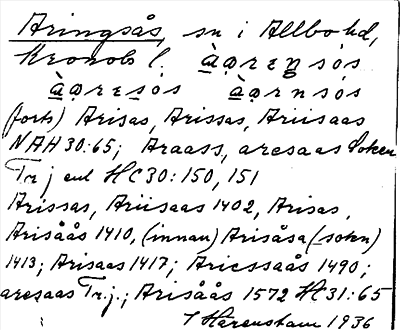 Aringsås, sn i Allbo hd,
Kronob l. àǫreŋsós
àǫresós àǫrnsós
(forts) Arisas, Arissas, Ariisaas
NAH 30:65; Araass, aresaas Soken
Tr j enl HC 30:150, 151
Arissas, Ariisaas 1402, Arisas,
Arisåås 1410, (innan) Arisåsa (sokn)
1413; Arisaas 1417; Ariessaås 1490;
aresaas Tr.j.; Arisåås 1572 HC 31:65
1936